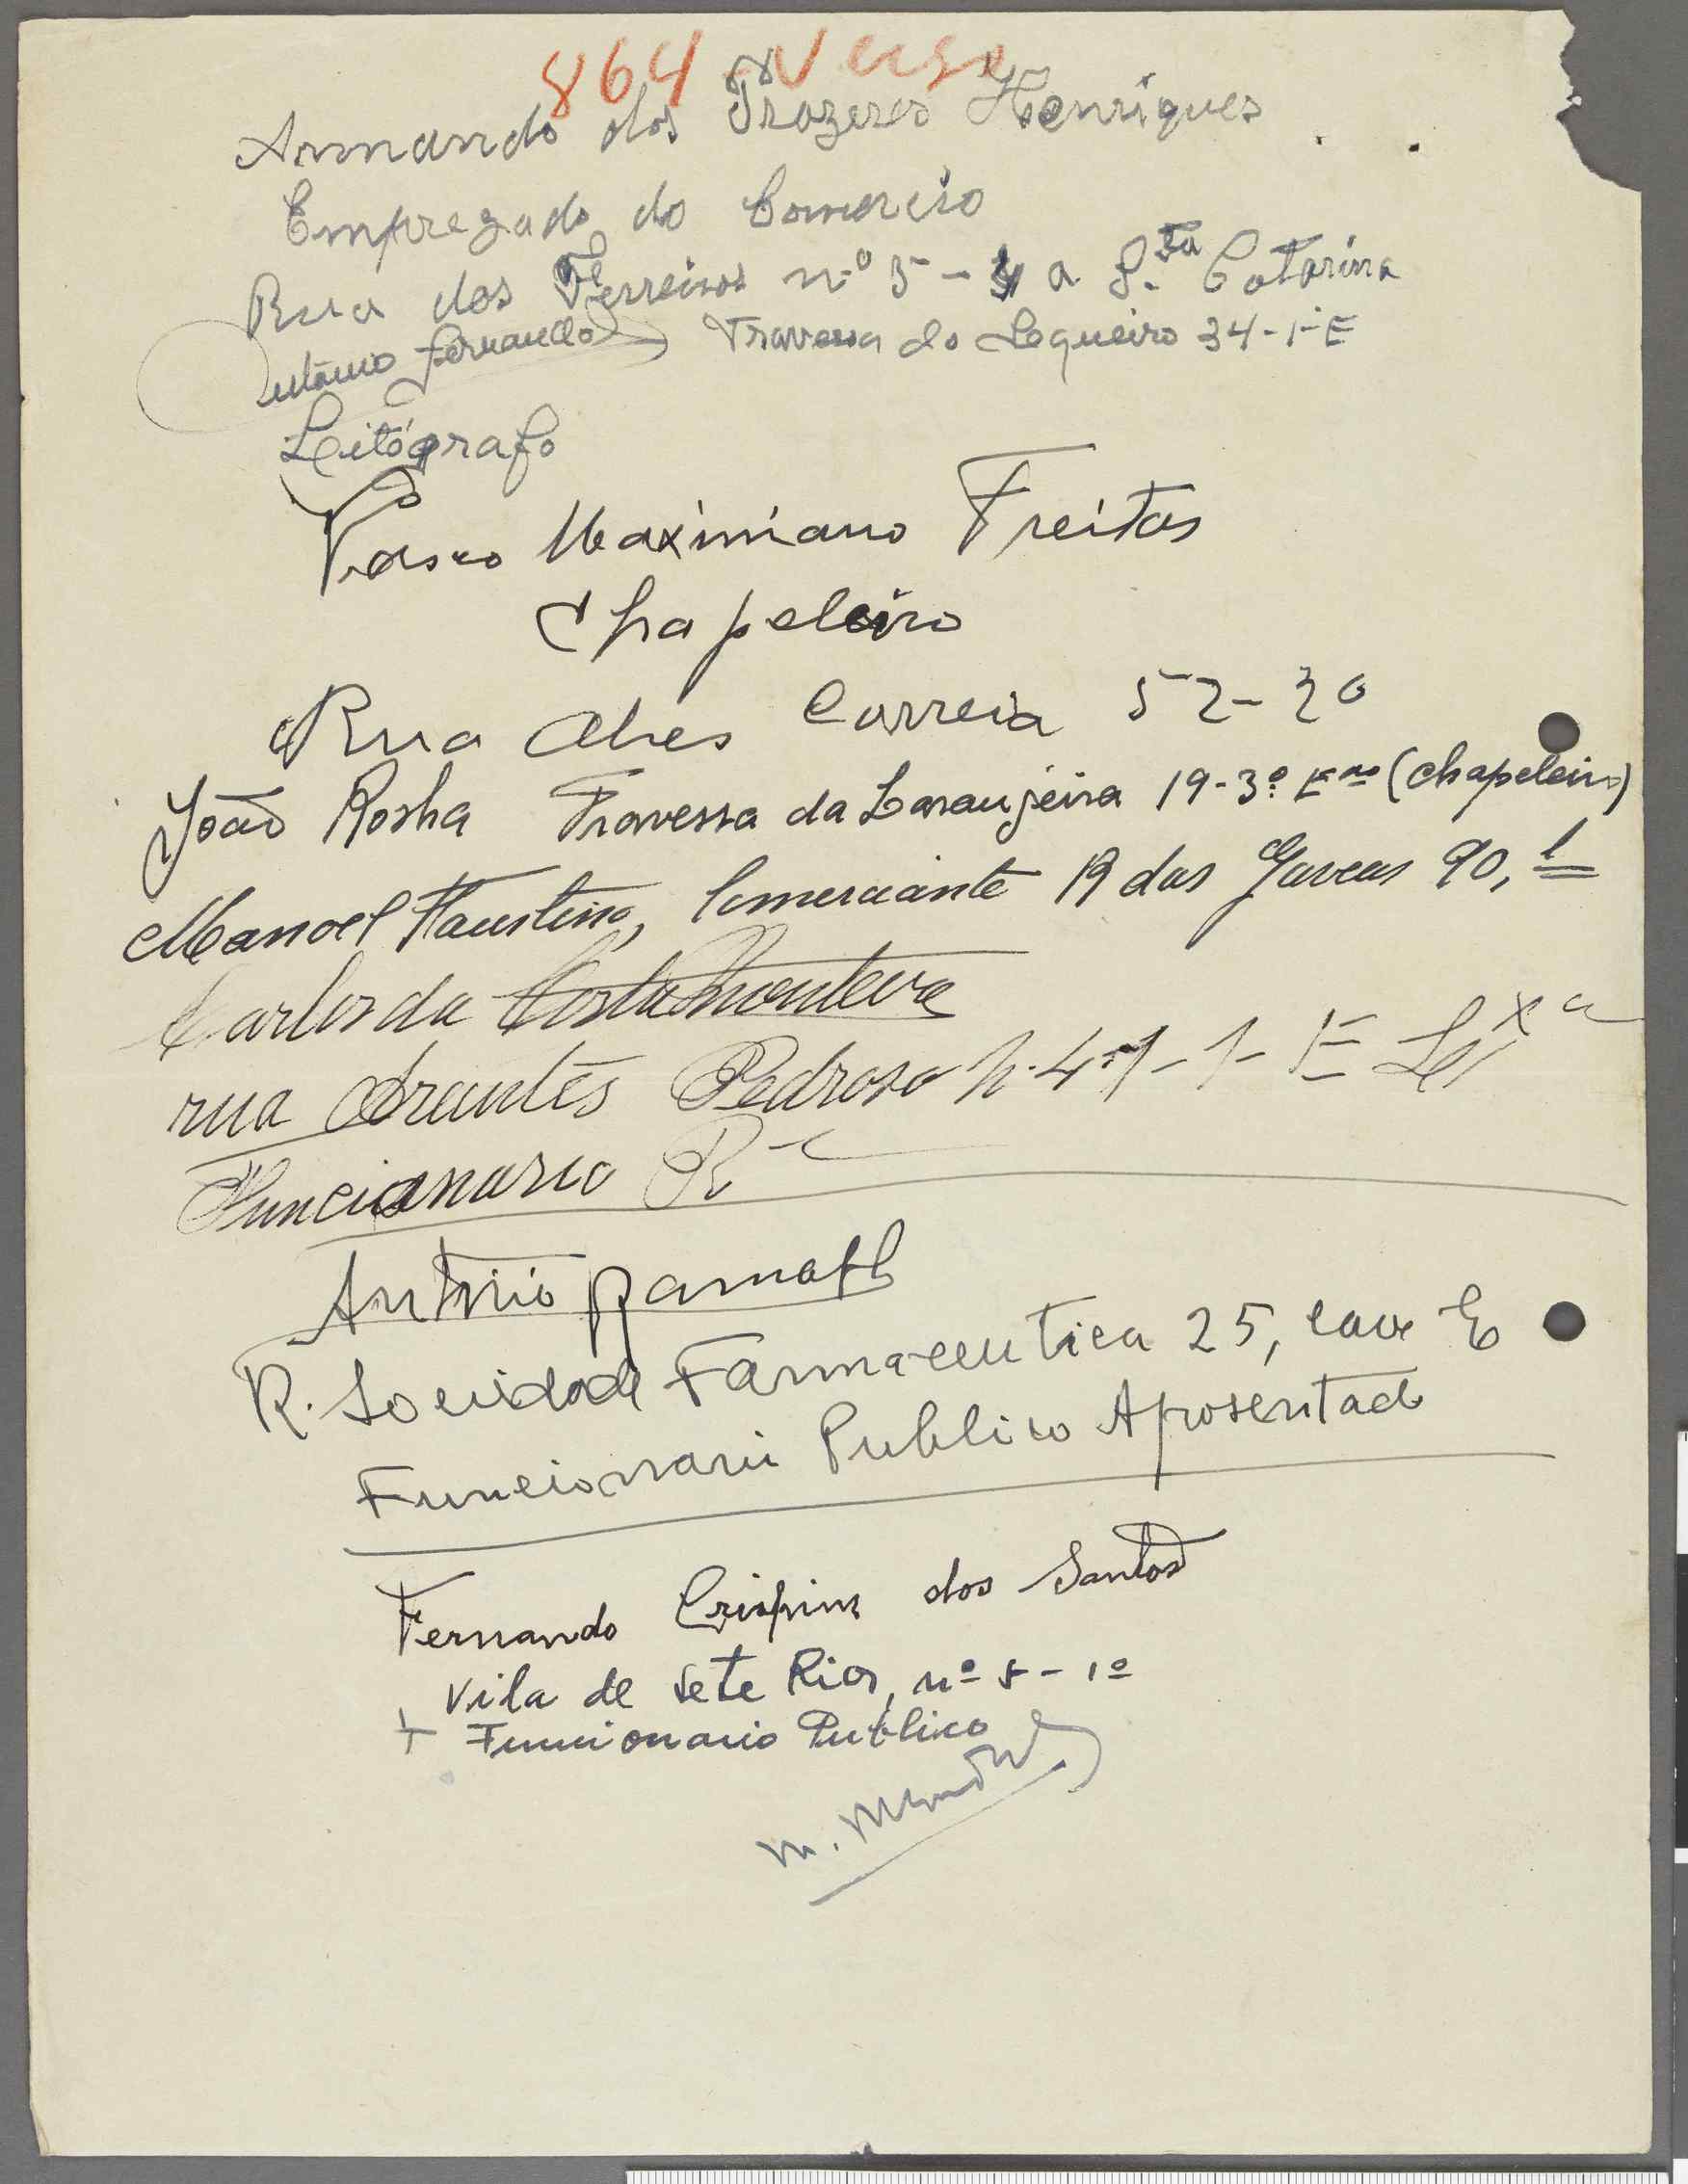 864 Verso
Armando dos Prazeres Henriques
Empregado do Comercio
Rua dos Ferreiros nº 5 - a S.ta Catarina
António Fernandes Travessa do Sequeiro 34-1-E
Leitógrafo
Vasco Maximiano Freitas
Chapeleiro
Rua Alves Correia 52-3o
João Rocha Travessa da Laranjeira 19-3º Eº (chapeleiro)
Manoel Faustino, Comerciante R das Gaveas 90, 1
Carlos da Costa Monteiro
rua Abrantes Pedroso N. 4-1-1-E Lxa
Funcionario
António
R. Sociedade Farmaceutica 25, cave E
Funcionario Publico Aposentado
Fernando Crispim dos Santos
Vila de Sete Rios, nº 5 - 1º
+ Funcionario Publico
M.